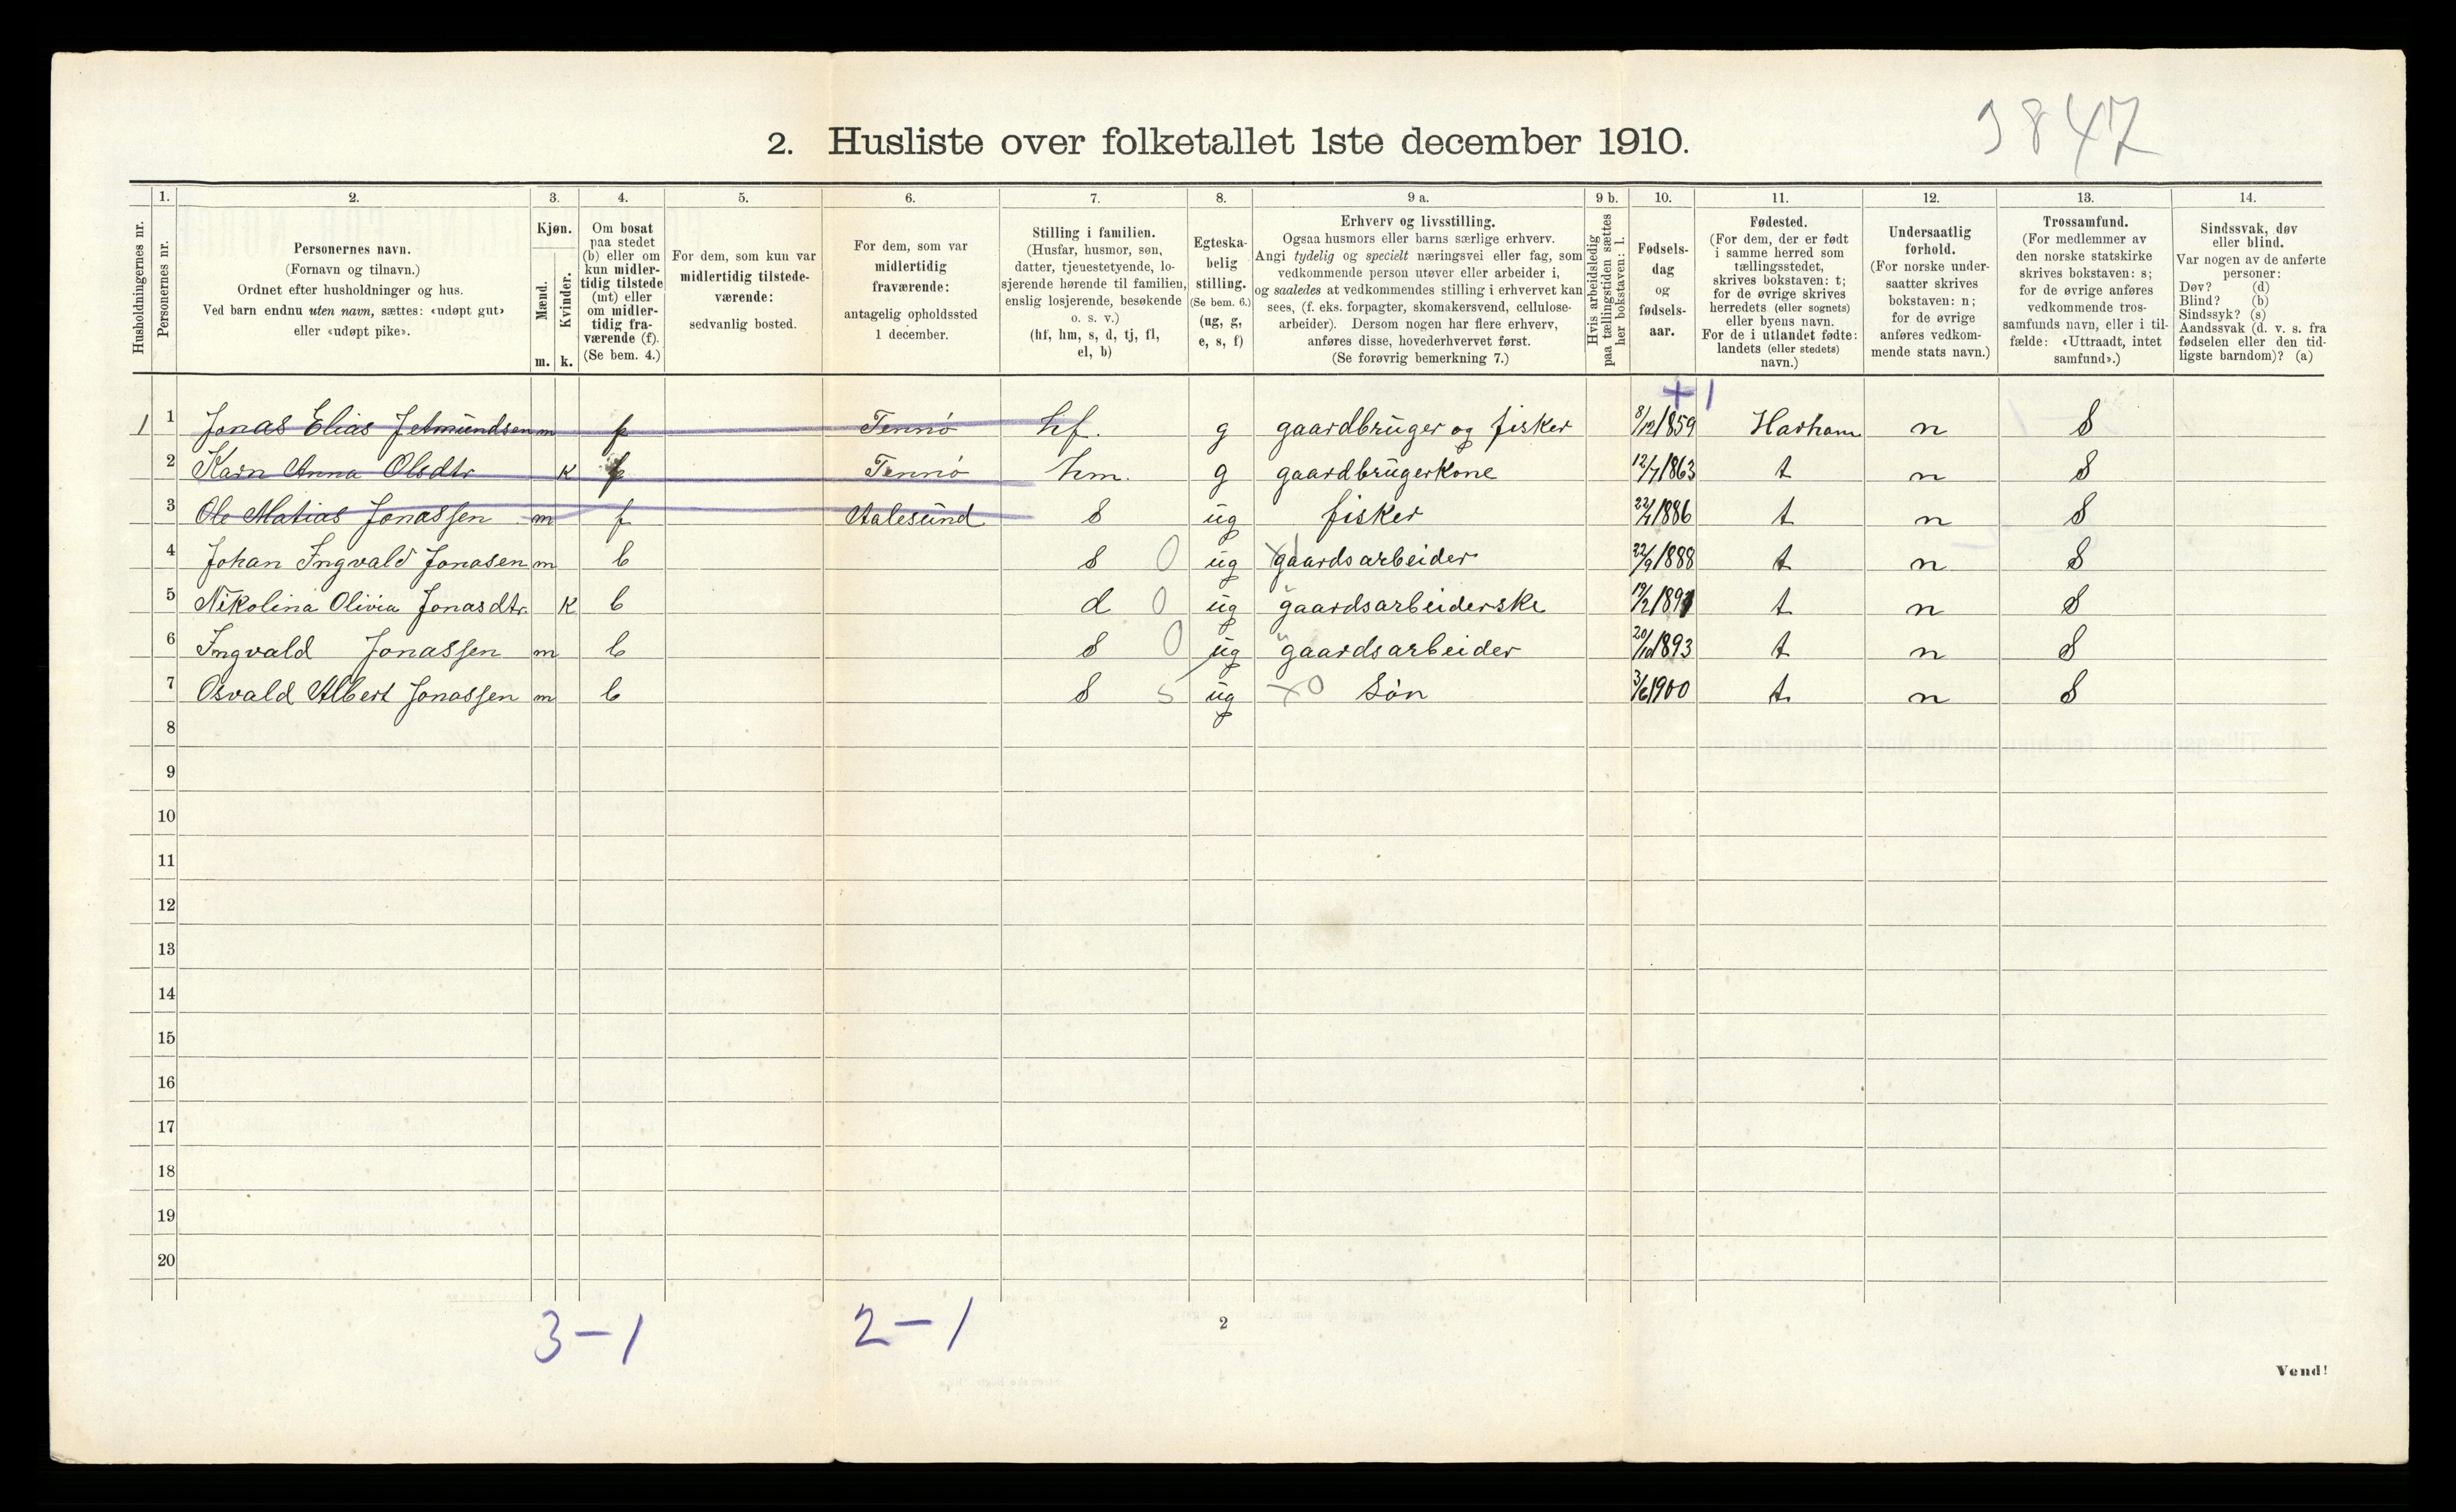 3847
2. Husliste over folketallet 1ste december 1910.
Husholdningernes nr.
1.
Personernes nr.
2.
Personernes navn.
(Fornavn og tilnavn.)
Ordnet efter husholdninger og hus.
Ved barn endnu uten navn, sættes: «udøpt gut»
eller «udøpt pike».
3.
Kjøn.
Mænd.
m.
Kvinder.
k.
4.
Om bosat
paa stedet
(b) eller om
kun midler-
tidig tilstede
(mt) eller
om midler-
tidig fra-
værende (f).
(Se bem. 4.)
5.
For dem, som kun var
midlertidig tilstede-
værende:
sedvanlig bosted.
6.
For dem, som var
midlertidig
fraværende:
antagelig opholdssted
1 december.
7.
Stilling i familien.
(Husfar, husmor, søn,
datter, tjenestetyende, lo-
sjerende hørende til familien,
enslig losjerende, besøkende
o. s. v.)
(hf, hm, s, d, tj, fl,
el, b)
8.
Egteska-
belig
stilling.
(Se bem. 6.)
(ug, g,
e, s, f)
9 a.
Erhverv og livsstilling.
Ogsaa husmors eller barns særlige erhverv.
Angi tydelig og specielt næringsvei eller fag, som
vedkommende person utøver eller arbeider i,
og saaledes at vedkommendes stilling i erhvervet kan
sees, (f. eks. forpagter, skomakersvend, cellulose-
arbeider). Dersom nogen har flere erhverv,
anføres disse, hovederhvervet først.
(Se forøvrig bemerkning 7.)
9 b.
Hvis arbeidsledig
paa tællingstiden sættes
her bokstaven: l.
10.
Fødsels-
dag
og
fødsels-
aar.
11.
Fødested.
(For dem, der er født
i samme herred som
tællingsstedet,
skrives bokstaven: t;
for de øvrige skrives
herredets (eller sognets)
eller byens navn.
For de i utlandet fødte:
landets (eller stedets)
navn.)
12.
Undersaatlig
forhold.
(For norske under-
saatter skrives
bokstaven: n;
for de øvrige
anføres vedkom-
mende stats navn.)
13.
Trossamfund.
(For medlemmer av
den norske statskirke
skrives bokstaven: s;
for de øvrige anføres
vedkommende tros-
samfunds navn, eller i til-
fælde: «Uttraadt, intet
samfund».)
14.
Sindssvak, døv
eller blind.
Var nogen av de anførte
personer:
Døv? (d)
Blind? (b)
Sindssyk? (s)
Aandssvak (d. v. s. fra
fødselen eller den tid-
ligste barndom)? (a)
+1
1 1 Jonas Elias Jetmundsen m f Tennø hf. g gaardbruger og fisker 8/12 1859 Harham n S
2 Karn Anna Olsdtr k f Tennø hm. g gaardbrugerkone 12/7 1863 t n S
3 Ole Matias Jonassen m f Aalesund s ug fisker 1886 t n S
4 Johan Ingvald Jonasen m b s 0 ug gaardsarbeider 22/9 1888 t n S
5 Nikolina Olivia Jonasdtr. k b d 0 ug gaardsarbeiderske 19/2 1891 t n S
6 Ingvald Jonassen m b s 0 ug gaardsarbeider 20/10 1893 t n S
7 Osvald Albert Jonassen m b s 5 ug x0 Søn 3/6 1900 t n S
8
9
10
11
12
13
14
15
16
17
18
19
20
3-1 2-1
2
Vend!